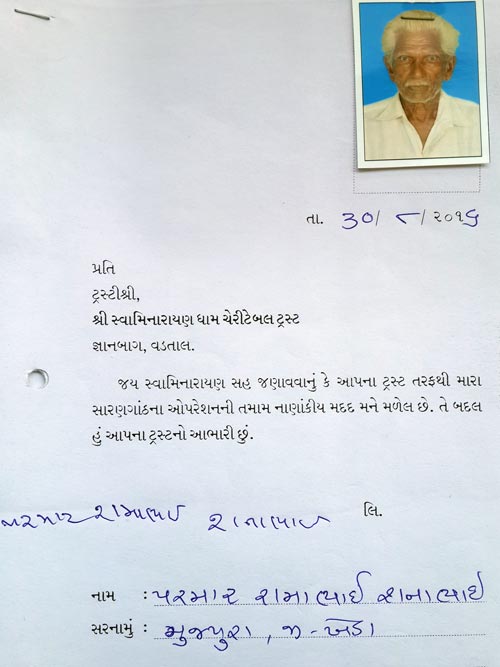 તા. ૩૦/ ૮/૨૦૧૬
પ્રતિ
ટ્રસ્ટીશ્રી,
શ્રી સ્વામિનારાયણ ધામ ચેરીટેબલ ટ્રસ્ટ
જ્ઞાનબાગ, વડતાલ.
જય સ્વામિનારાયણ સહ જણાવવાનું કે આપના ટ્રસ્ટ તરફથી મારા
સારણગાંઠના ઓપરેશનની તમામ નાણાંકીય મદદ મને મળેલ છે. તે બદલ
હું આપના ટ્રસ્ટનો આભારી છું.
લિ.
પરમાર રામાભાઈ શનાભાઈ
નામ : પરમાર રામાભાઈ શનાભાઈ
સરનામું : મુજપુરા, જી-ખેડા